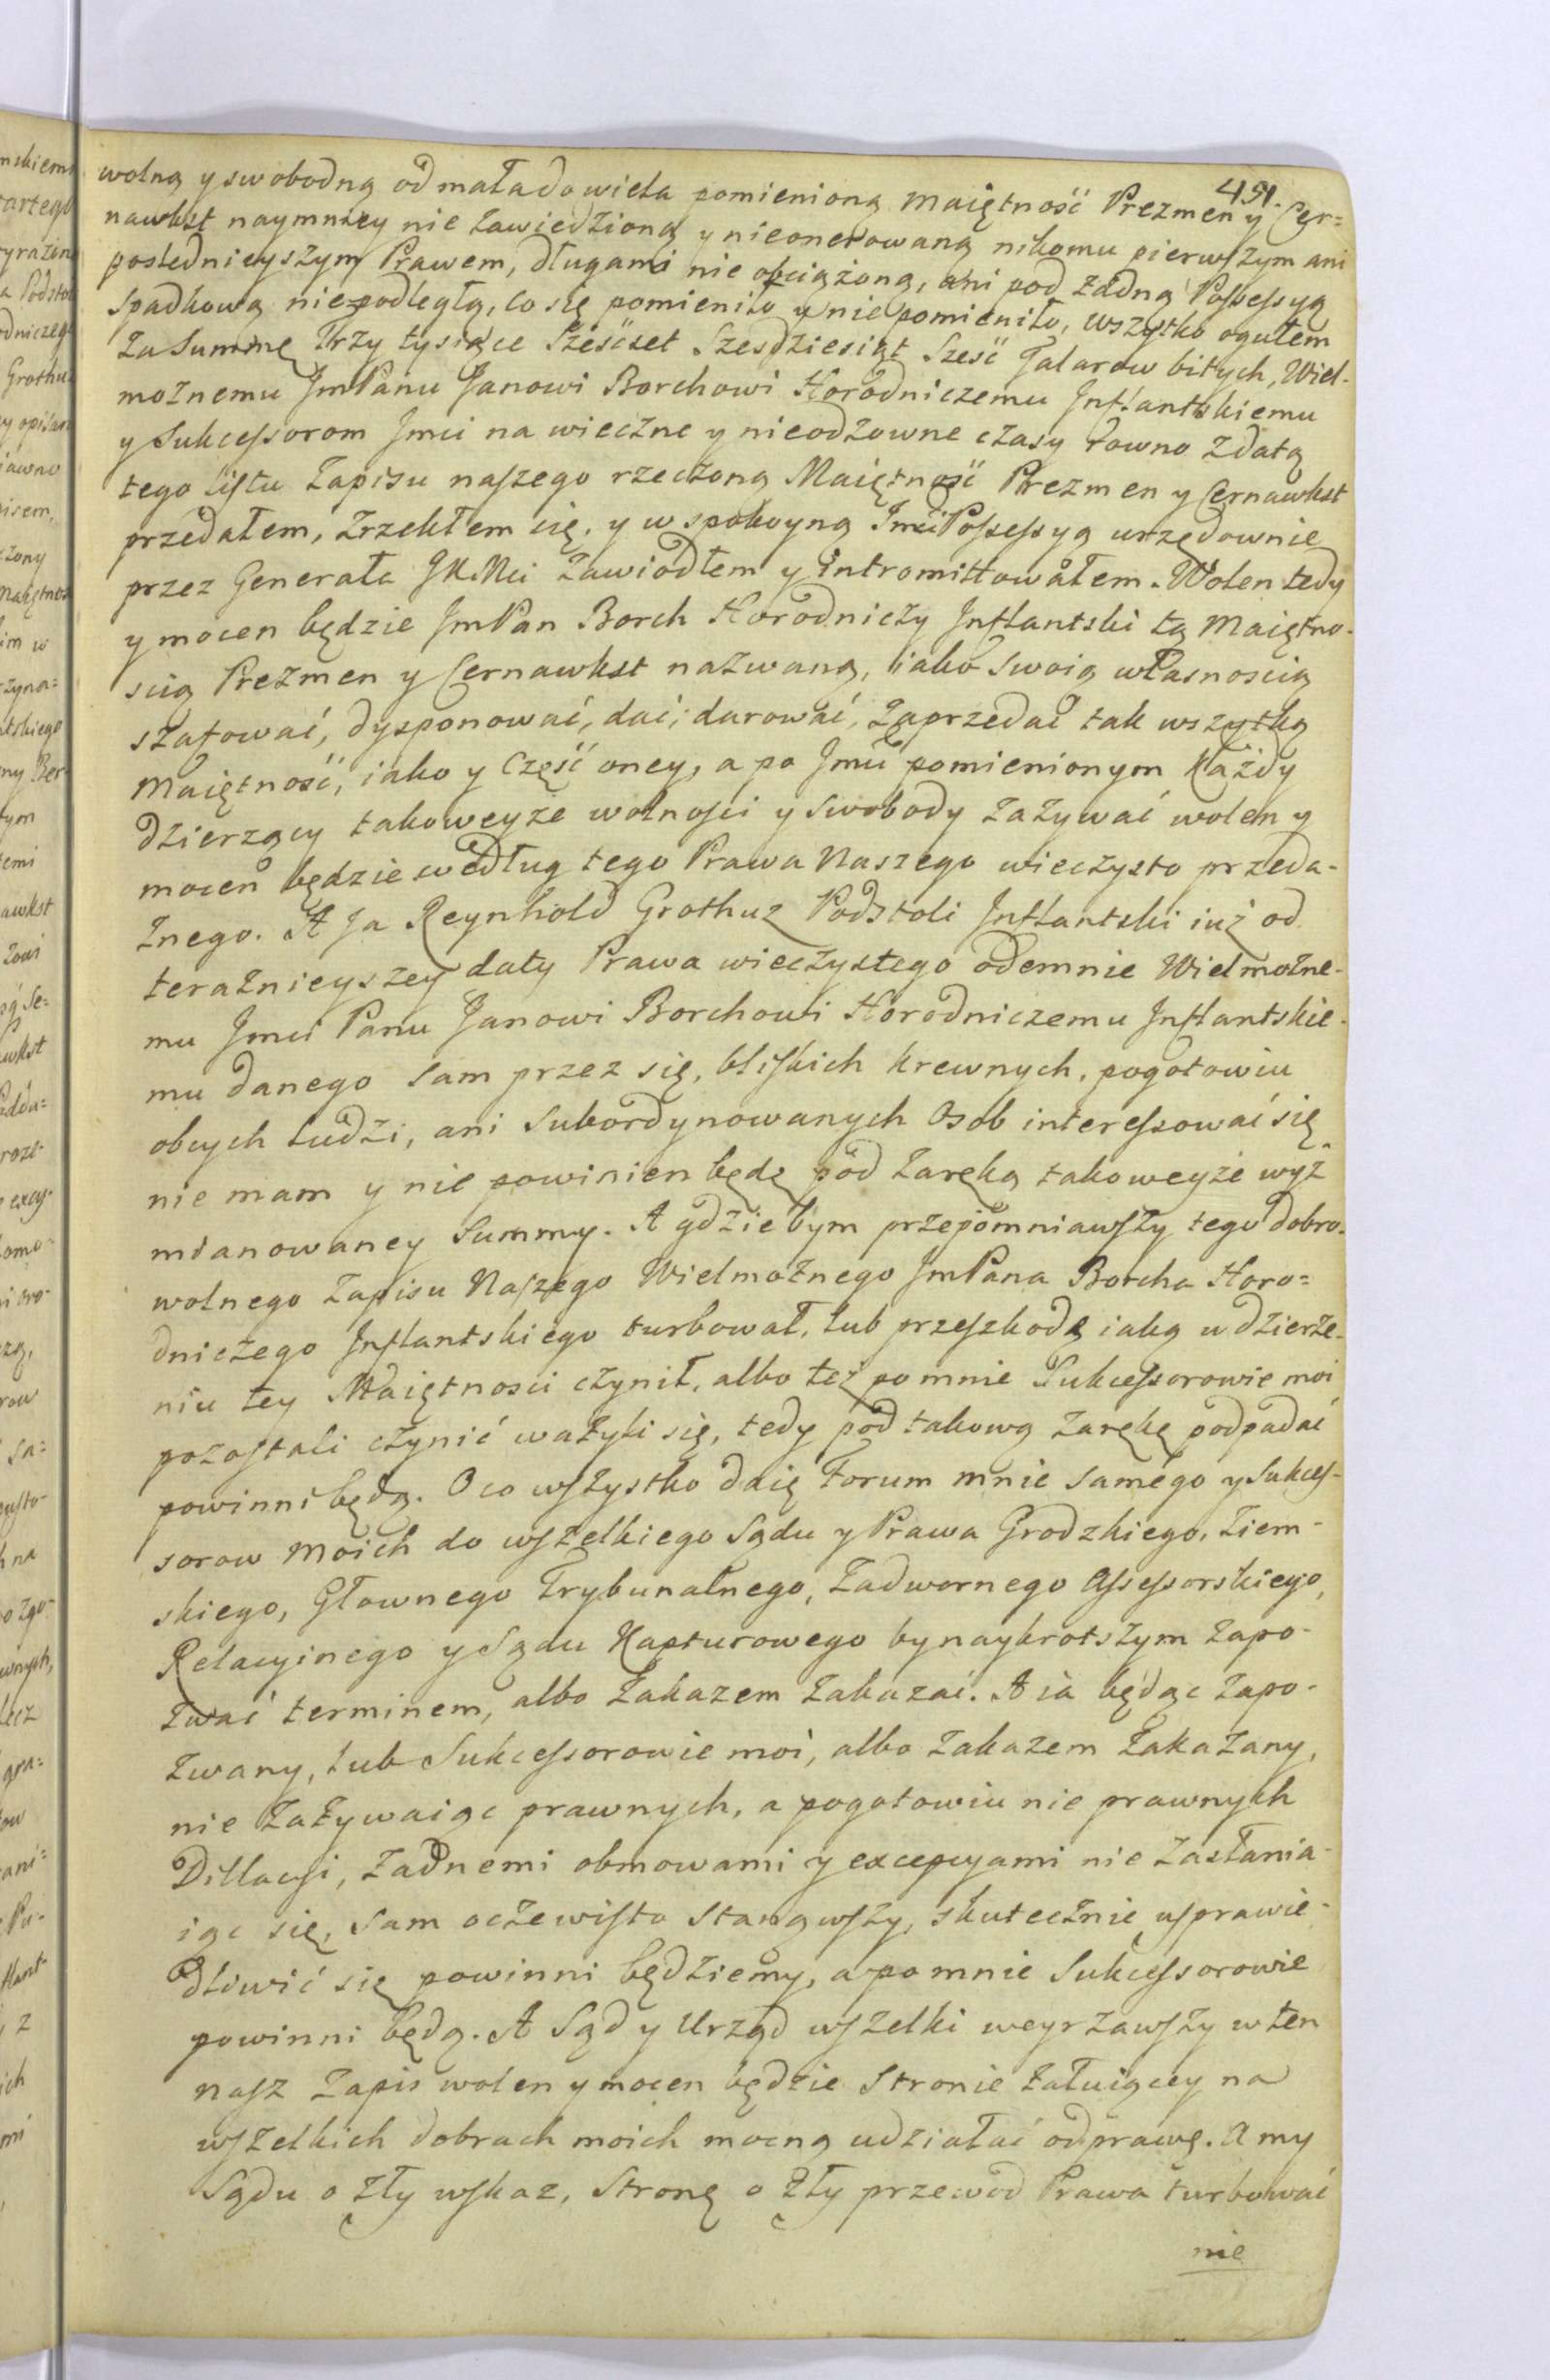 491.
wolną y swobodną od mała do wiela pomienioną Maiętność Prezmen y Cer=
nawkst naymniey nie zawiedzioną y nieonerowaną nikomu pierwszym ani
poslednieyszym Prawem, długami nie obciążoną, ani pod żadną Possessyą
spadkową niepodległą, co się pomieniło y nie pomieniło, wszystko ogułem
za Summę Trzy tysiące Sześćset Szesdziesiąt Sześć Talarow bitych, Wiel-
możnemu JmPanu Janowi Borchowi Horodniczemu Inflantskiemu
y Sukcessorom Jmci na wieczne y nieodzowne czasy rowno z datą
tego listu Zapisu naszego rzeczoną Maiętność Prezmen y Cernawkst
przedałem, zrzekłem się, y w spokoyną Jmci Possessyą urzędownie
przez Generała JKMci zawiodłem y intromittowałem. Wolen tedy
y mocen będzie JmPan Borch Horodniczy Inflantski tą Maiętno-
scią Prezmen y Cernawkst nazwaną, iako swoią własnoscią
szafować, dysponować, dać, darować, zaprzedać tak wszytką
Maiętność, iako y Część oney, a po Jmci pomienionym każdy
dzierzący takoweyże wolności y swobody zażywać wolen y
mocen będzie według tego Prawa Naszego wieczysto przeda-
żnego. A Ja Reynhold Grothuz Podstoli Inflantski iuż od
teraznieyszey daty Prawa wieczystego odemnie Wielmożne-
mu Jmci Panu Janowi Borchowi Horodniczemu Inflantskie-
mu danego sam przez się, bliskich krewnych, pogotowiu
obcych ludzi, ani subordynowanych Osob interessować się
nie mam y nie powinien będę pod zaręką takoweyże wyż
mianowaney Summy. A gdzie bym przepomniawszy tego dobro-
wolnego Zapisu Naszego Wielmożnego JmPana Borcha Horo=
dniczego Inflantskiego turbował, lub przeszkodę iaką w dzierże-
niu tey Maiętnosci czynił, albo też po mnie Sukcessorowie moi
pozostali czynić ważyli się, tedy pod takową zarękę podpadać
powinni będą. O co wszystko daię Forum mnie samego y Sukces-
sorow moich do wszelkiego Sądu y Prawa Grodzkiego, Ziem-
skiego, Głownego Trybunalnego, Zadwornego Assessorskiego,
Relacyinego y Sądu Kapturowego by naykrotszym zapo-
zwać terminem, albo Zakazem zakazać. A ia będąc zapo-
zwany, lub Sukcessorowie moi, albo zakazem zakazany,
nie zażywaiąc prawnych, a pogotowiu nie prawnych
Dillacyi, żadnemi obmowami y excepcyami nie zasłania-
iąc się, sam oczewisto stanąwszy, skutecznie usprawie-
dliwić się powinni będziemy, a po mnie Sukcessorowie
powinni będą. A Sąd y Urząd wszelki weyrzawszy w ten
nasz Zapis wolen y mocen będzie Stronie żałuiącey na
wszelkich dobrach moich mocną udziałać odprawę. A my
Sądu o zły wskaz, Stronę o zły przewod Prawa turbować
nie